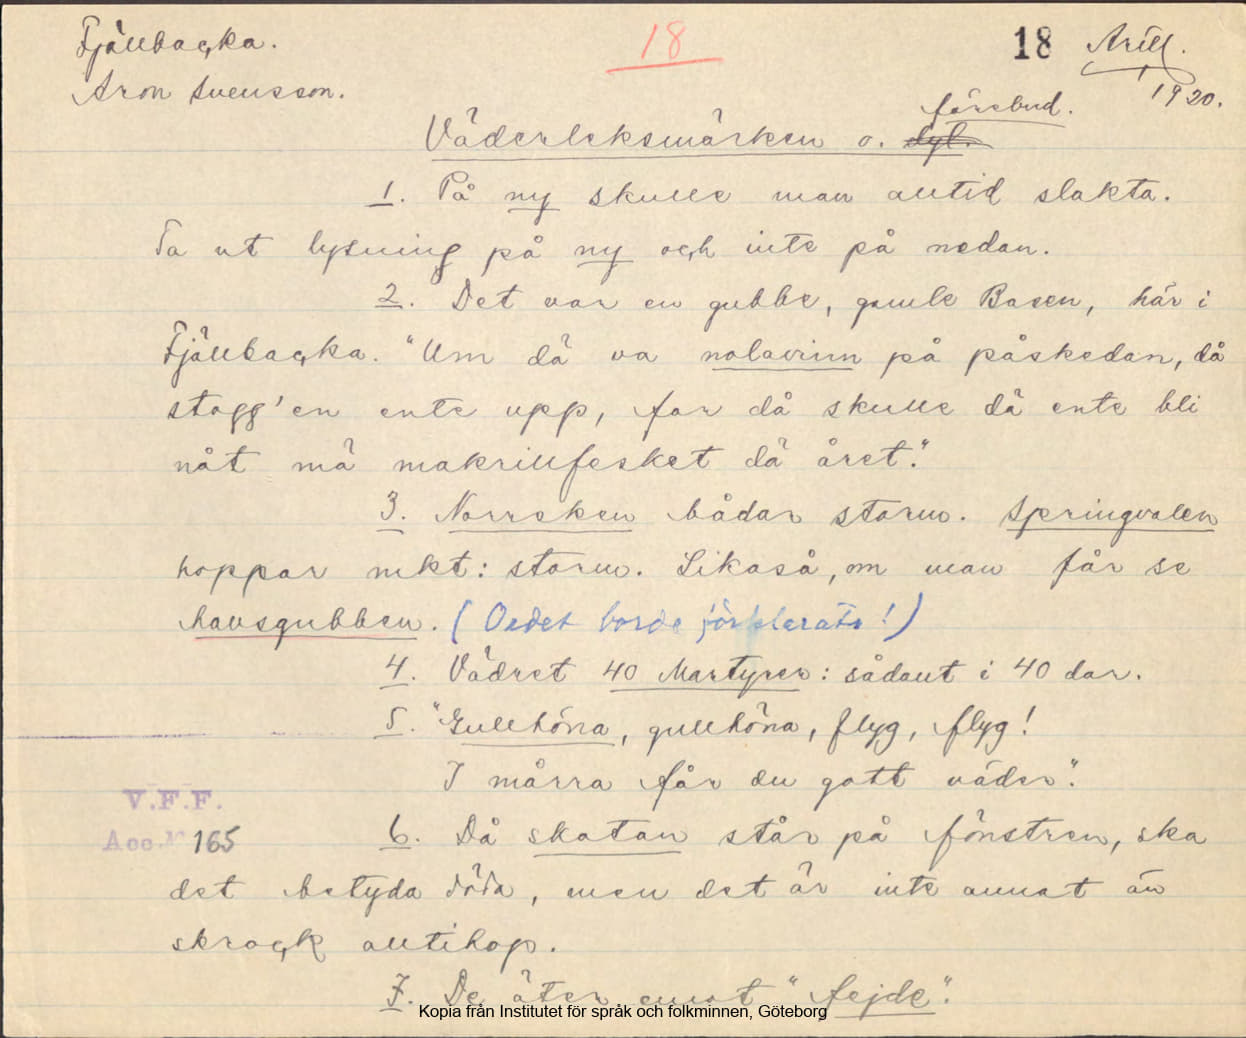 Fjällbacka. 18 18 Arill.
Aron Svensson. 1920.
förebud.
Väderleksmärken o. dyl.
1. På ny skulle man alltid slakta.
Ta ut lysning på ny och inte på nedan.
2. Det var en gubbe, gamle Basen, här i
Fjällbacka. "Um dä va nolavinn på påskedan, då
stogg'en ente upp, for då skulle dä ente bli
nåt mä makrillfesket dä året."
3. Norrsken bådar storm. Springvalen
hoppar mkt: storm. Likaså, om man får se
havsgubben. (Ordet borde förklarats!)
4. Vädret 40 Martyrer: sådant i 40 dar.
5. "Gullhöna, gullhöna, flyg, flyg!
I mårra får du gott väder."
V.F.F.
Acc. Nr 165
6. Då skatan står på fönstren, ska
det betyda döda, men det är inte annat än
skrock alltihop.
7. De äter emot "fejde".
Kopia från Institutet för språk och folkminnen, Göteborg